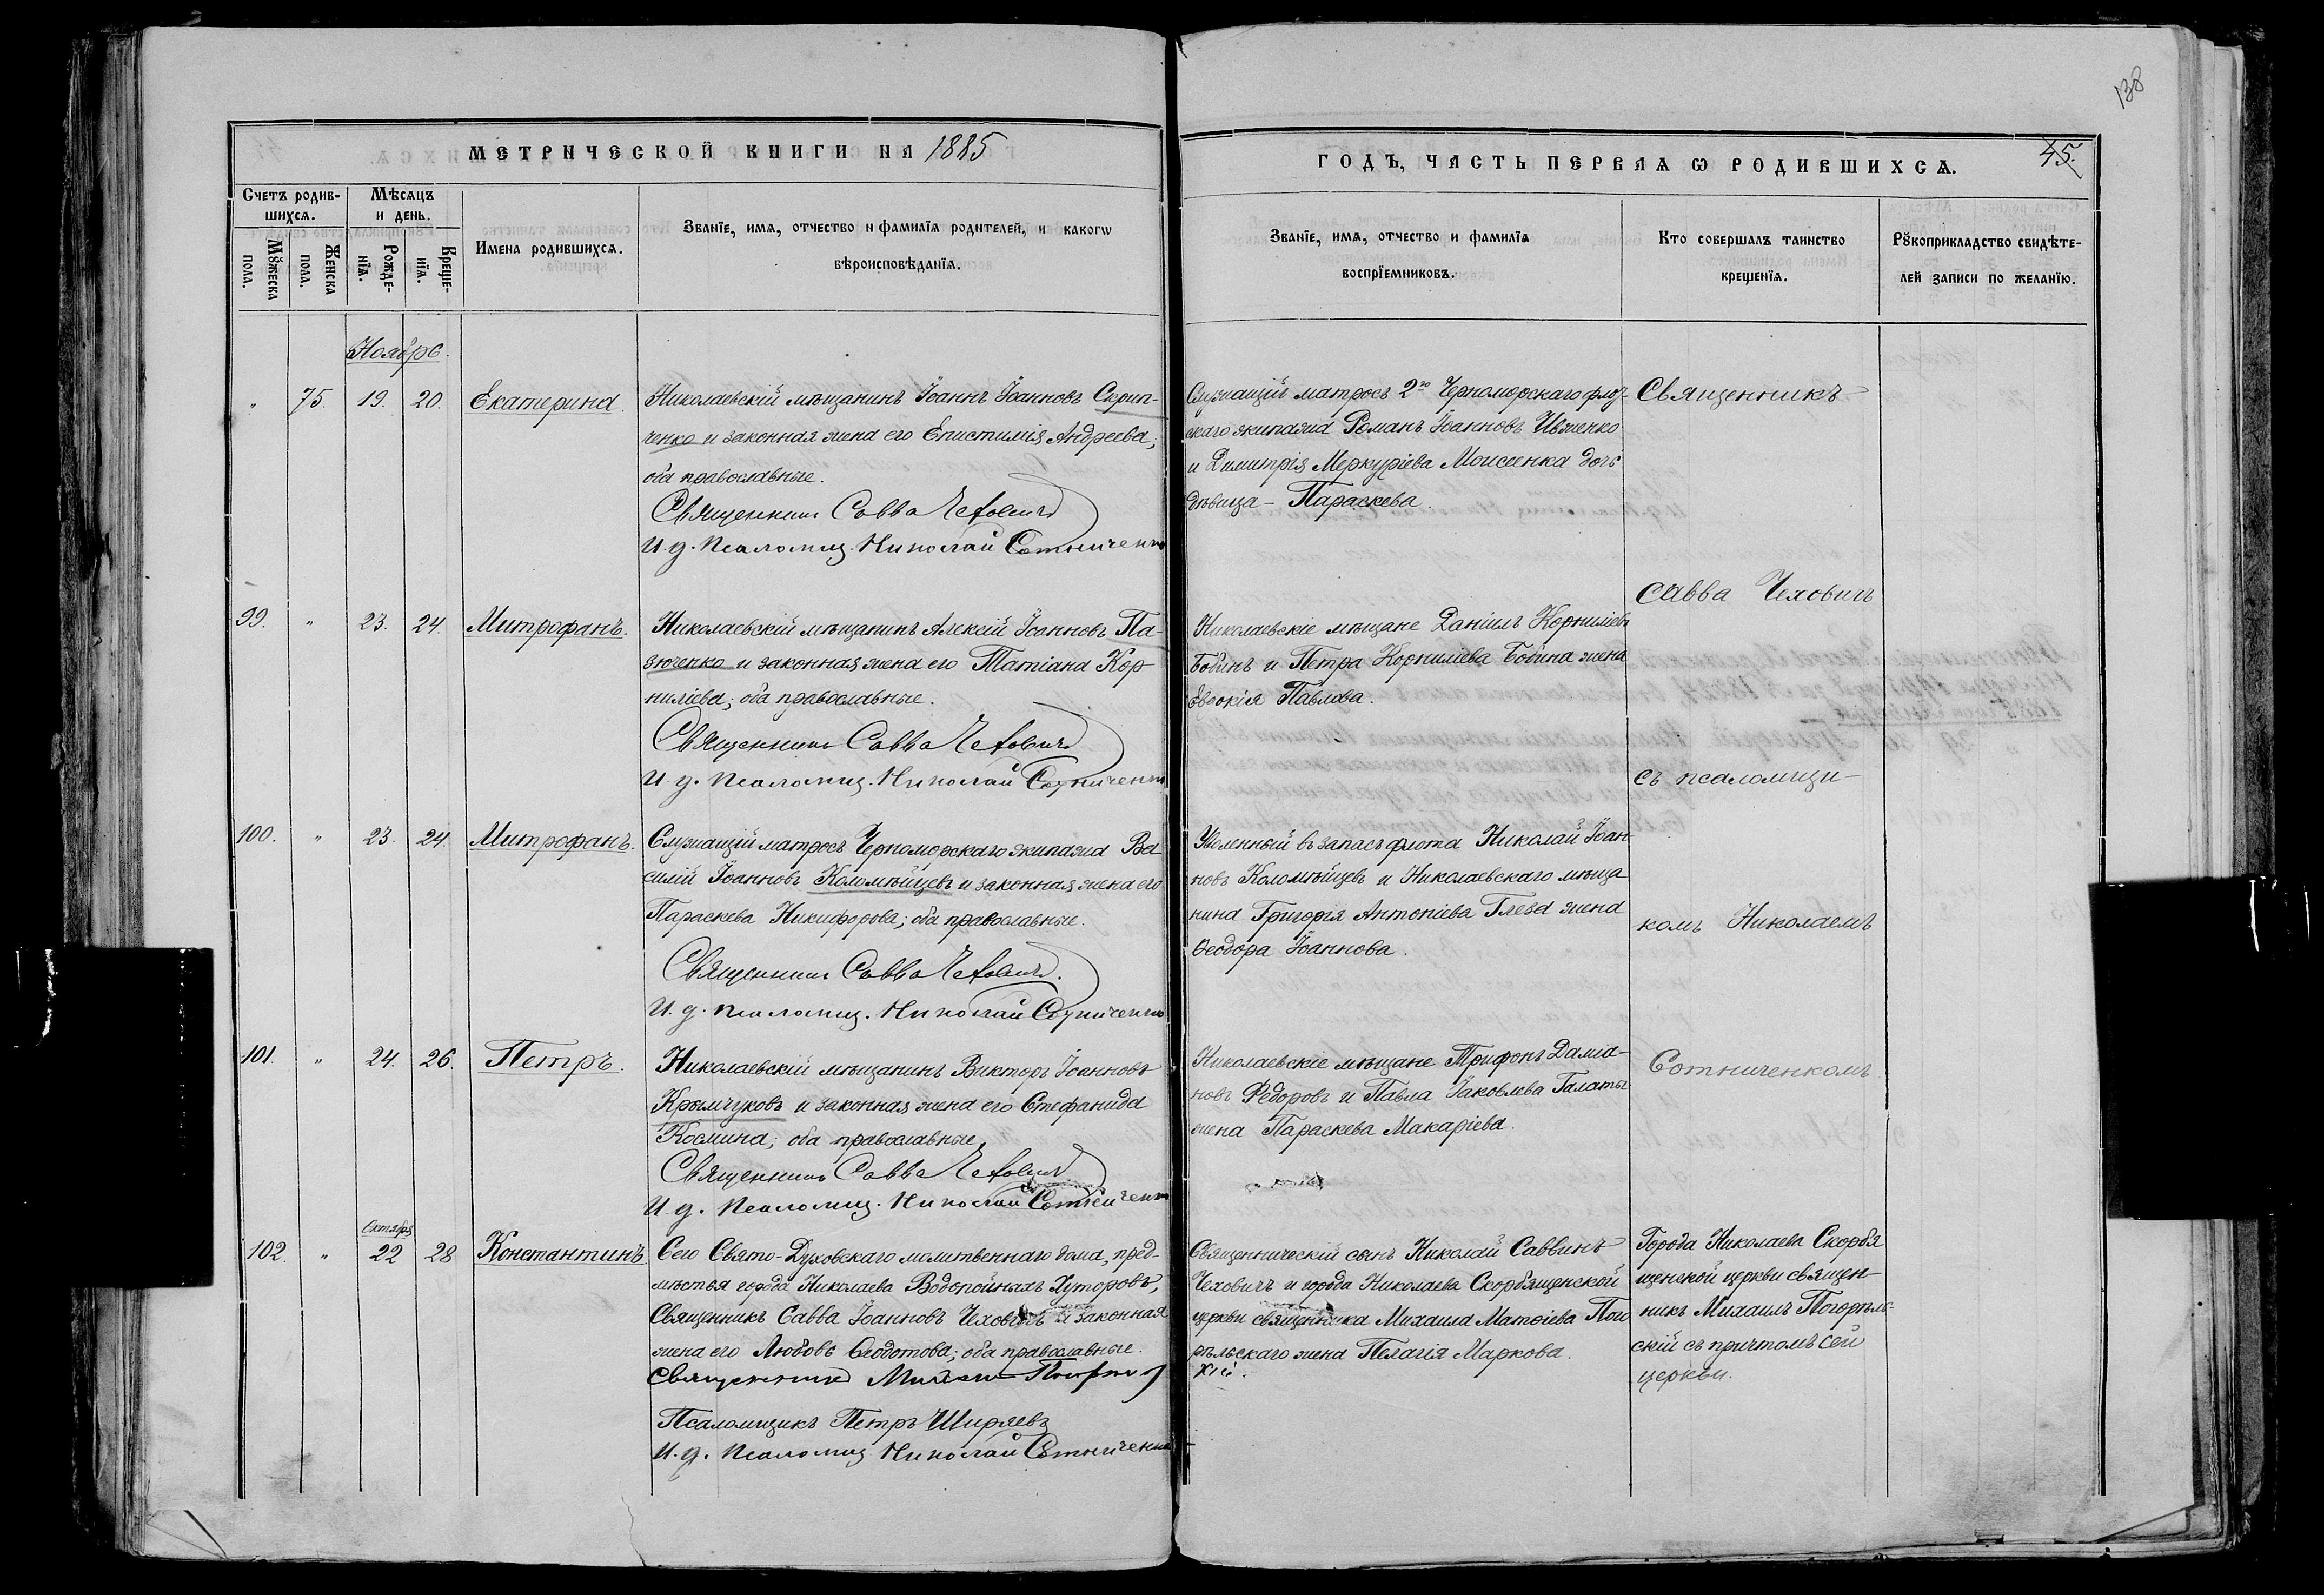 138
МЕТРИЧЕСКОЙ КНИГИ НА 1885
ГОДЪ, ЧАСТЬ ПЕРВАѦ Ѡ РОДИВШИХСѦ.
45.
Счетъ родив-
шихсѧ.
Мꙋжеска
пола.
Женска
пола.
Мѣсѧцъ
и день.
Рожде-
нїѧ.
Креще-
нїѧ.
Имена родившихсѧ.
Званїе, имѧ, отчество и фамилїѧ родителей, и какогѡ
вѣроисповѣданїѧ.
Званїе, имѧ, отчество и фамилїѧ
воспрїемниковъ.
Кто совершалъ таинство
крещенїѧ.
Рꙋкоприкладство свидѣте-
лей записи по желанїю.
Ноябрь.
" 75. 19. 20. Екатерина.
Николаевскій мѣщанинъ Іоаннъ Іоанновъ Скрип-
ченко и законная жена его Епистимія Андреева;
оба православные.
Священникъ Савва Чеховичъ
И. д. псаломщ. Николай Сотниченко
Служащій матросъ 2го Черноморскаго флот-
скаго экипажа Романъ Іоанновъ Ивженко
и Димитрія Меркуріева Моисеенка дочь
дѣвица – Параскева.
99. " 23. 24. Митрофанъ.
Николаевскій мѣщанинъ Алексій Іоанновъ Па-
зюченко и законная жена его Татіана Кор-
ниліева; оба православные.
Священникъ Савва Чеховичъ
И. д. псаломщ. Николай Сотниченко
Николаевскіе мѣщане Даніилъ Корниліевъ
Бобинъ и Петра Корниліева Бобина жена
Евдокія Павлова.
100. " 23. 24. Митрофанъ.
Служащій матросъ Черноморскаго экипажа Ва-
силій Іоанновъ Коломѣйцевъ и законная жена его
Параскева Никифорова; оба православные.
Священникъ Савва Чеховичъ.
И. д. псаломщ. Николай Сотниченко
Уволенный въ запасъ флота Николай Іоан-
новъ Коломѣйцевъ и Николаевскаго мѣща-
нина Григорія Антоніева жена
Ѳеодора Іоаннова.
101. " 24. 26. Петръ.
Николаевскій мѣщанинъ Викторъ Іоанновъ
Крымчуковъ и законная жена его Стефанида
Космина; оба православные.
Священникъ Савва Чеховичъ
И. д. псаломщ. Николай Сотниченко
Николаевскіе мѣщане Трифонъ Даміа-
новъ Федоровъ и Павла Іаковлева Галаты
жена Параскева Макаріева.
Священникъ
Савва Чеховичъ
съ псаломщи-
комъ Николаемъ
Сотниченкомъ
Октября
102. " 22 28 Константинъ.
Сего Свято-Духовскаго молитвеннаго дома, пред-
мѣстья города Николаева Водопойныхъ Хуторовъ,
Священникъ Савва Іоанновъ Чеховичъ и законная
жена его Любовь Ѳеодотова; оба православные.
Священникъ
Псаломщикъ Петръ Ширяевъ
И. д. псаломщ. Николай Сотниченко
Священническій сынъ Николай Саввинъ
Чеховичъ и города Николаева Скорбященской
церкви священника Михаила Матѳіева Пог
рѣльскаго жена Пелагія Маркова.
Города Николаева Скорбя
щенской церкви священ-
никъ Михаилъ Погорѣль-
скій съ причтомъ сей
церкви.